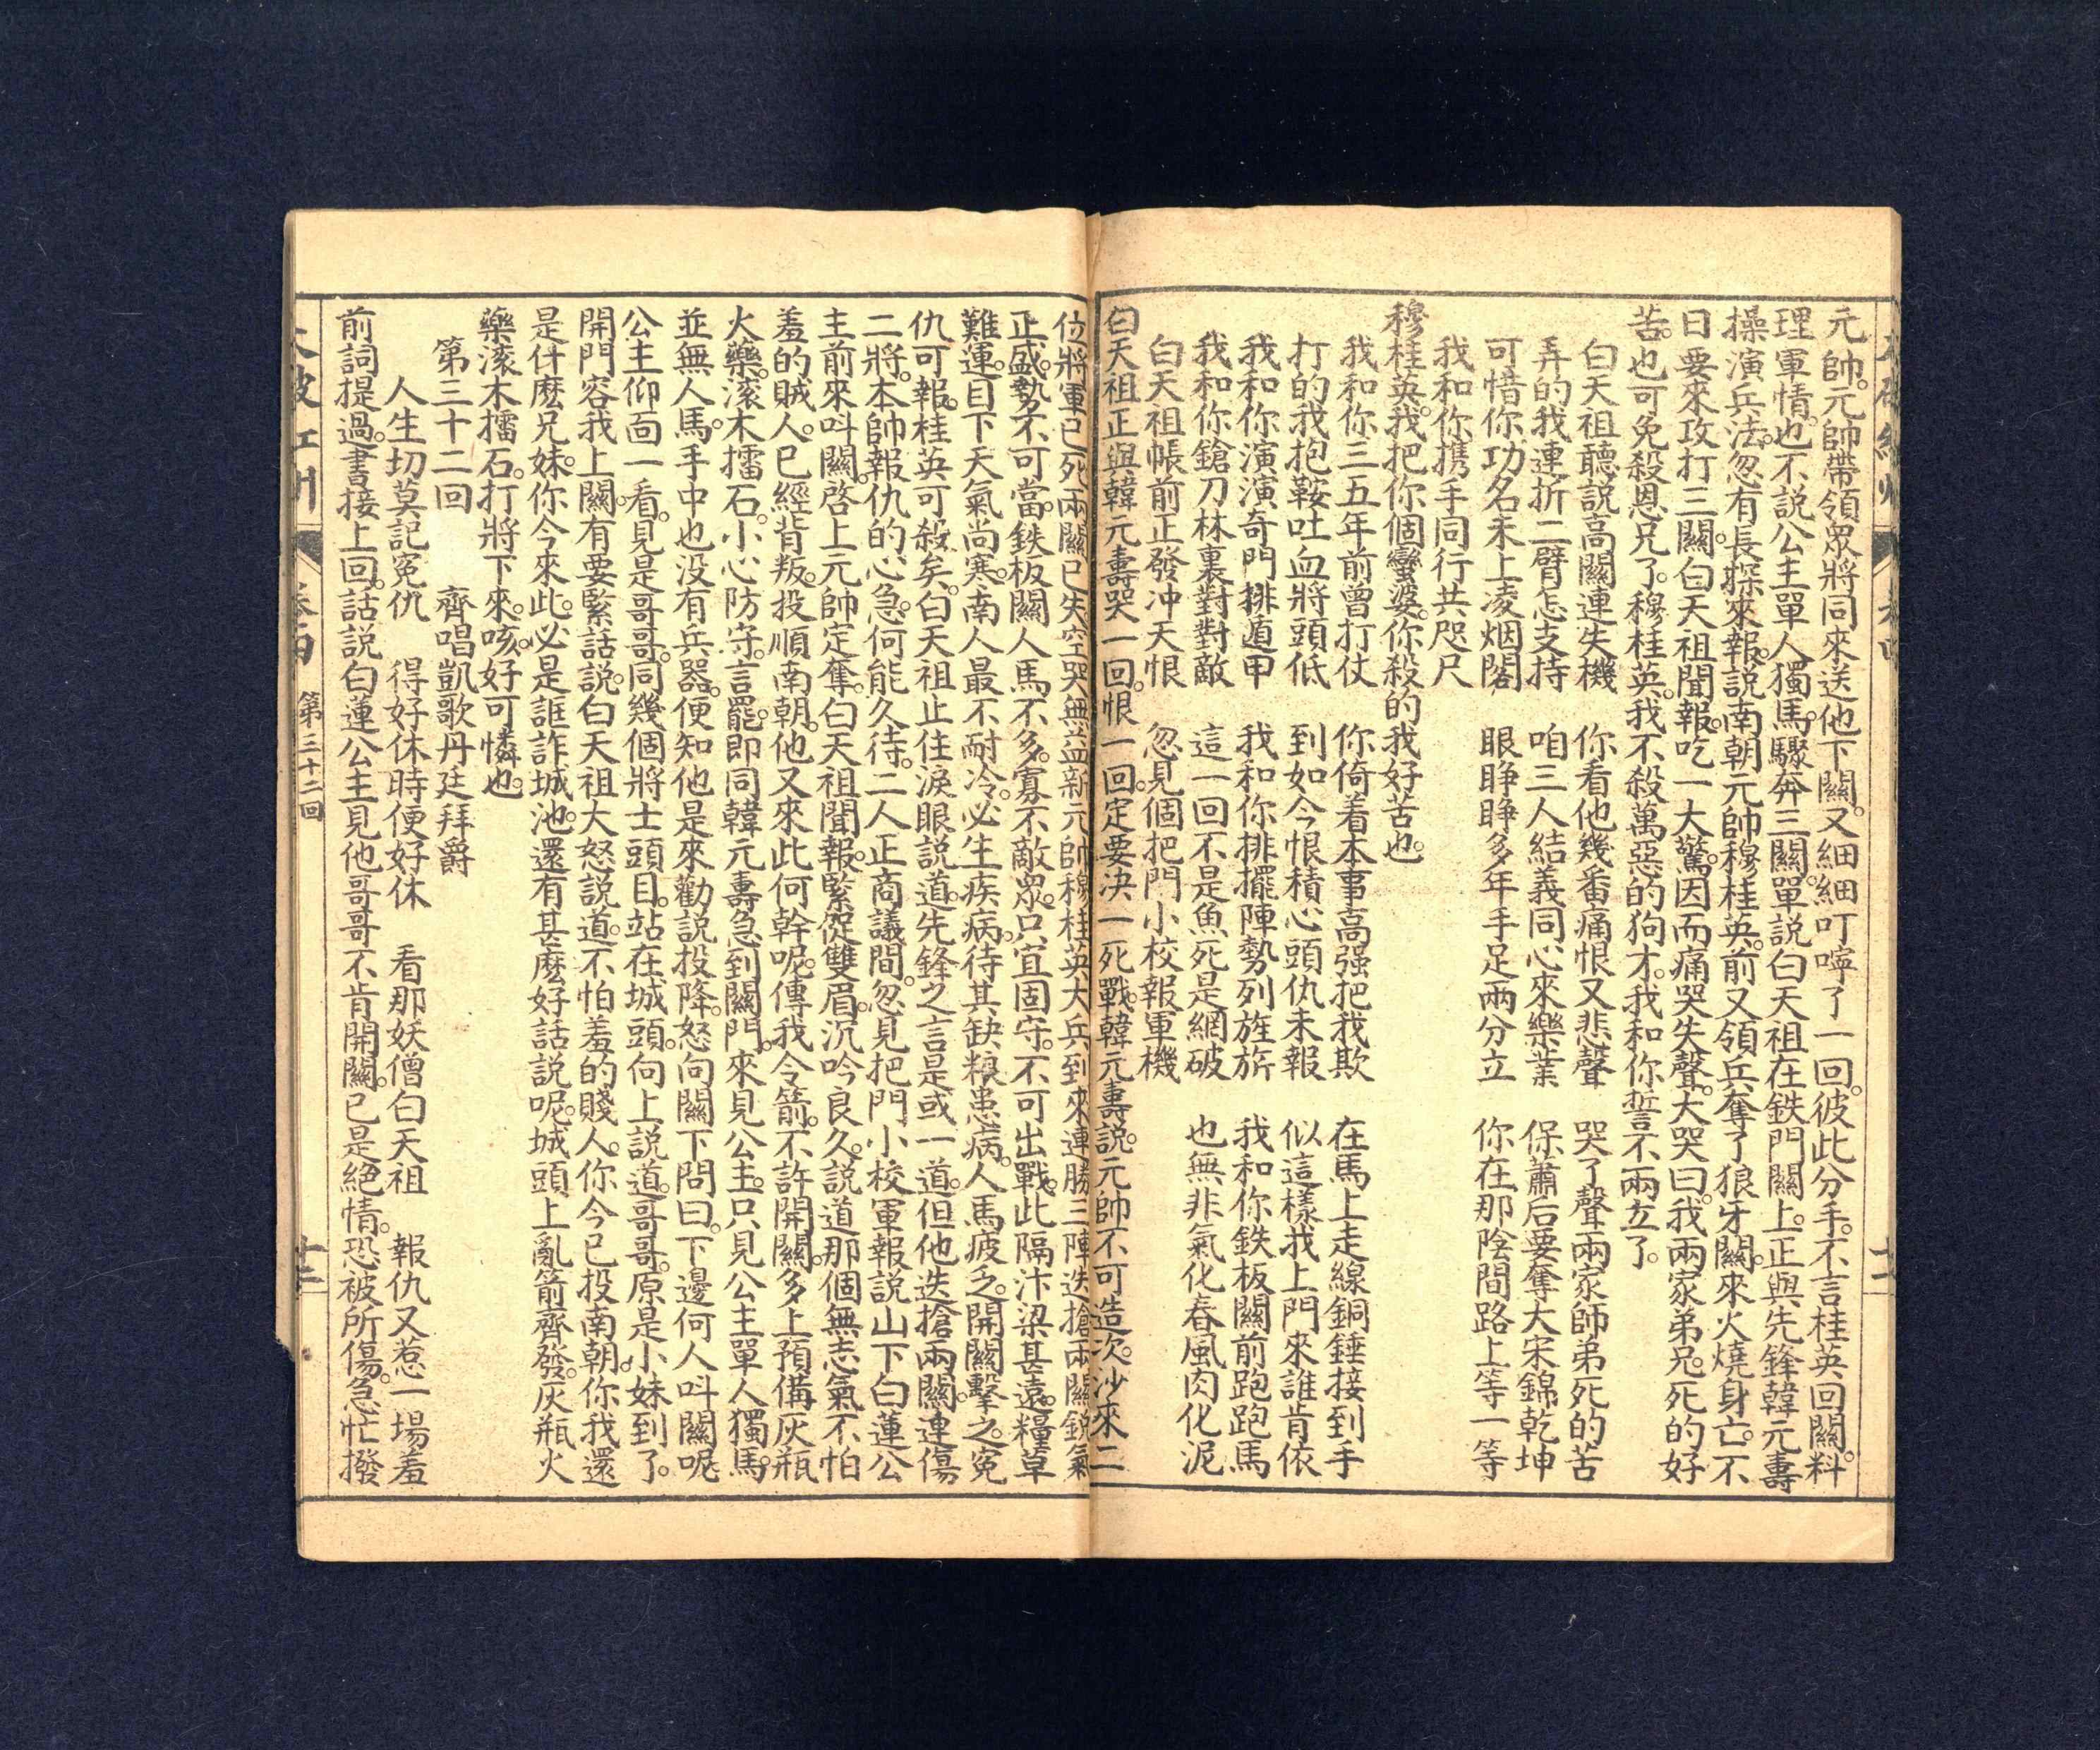 元帥。元帥帶領眾將同來送他下關。又細細叮嚀了一回。彼此分手。不言桂英回關。料
理軍情。也不説公主單人獨馬。驟奔三關。單説白天祖在鉄門關上。正與先鋒韓元壽
操演兵法。忽有長探來報。説南朝元帥穆桂英。前又領兵奪了狼牙關。來火燒身亡。不
日要來攻打三關。白天祖聞報。吃一大驚。因而痛哭失聲。大哭曰。我兩家弟兄。死的好
苦。也可免殺恩兄了。穆桂英。我不殺萬惡的狗才。我和你誓不兩立了。
白天祖聽説高關連失機　你看他幾番痛恨又悲聲　哭了聲兩家師弟死的苦
弄的我連折二臂怎支持　咱三人結義同心來樂業　保蕭后要奪大宋錦乾坤
可惜你功名未上凌烟閣　眼睜睜多年手足兩分立　你在那陰間路上等一等
我和你携手同行共咫尺
穆桂英。我把你個蠻婆。你殺的我好苦也。
我和你三五年前曾打仗　你倚着本事高强把我欺　在馬上走線銅錘接到手
打的我抱鞍吐血將頭低　到如今恨積心頭仇未報　似這樣找上門來誰肯依
我和你演演奇門排遁甲　我和你排擺陣勢列旌旂　我和你鉄板關前跑跑馬
我和你鎗刀林裏對對敵　這一回不是魚死是網破　也無非氣化春風肉化泥
白天祖帳前正發冲天恨　忽見個把門小校報軍機
白天祖正與韓元壽哭一回。恨一回。定要决一死戰。韓元壽説。元帥不可造次。沙來二
位將軍已死。兩關已失。空哭無益。新元帥穆桂英大兵到來。連勝三陣。迭搶兩關。銳氣
正盛。勢不可當。鉄板關人馬不多。寡不敵眾。只宜固守。不可出戰。此隔汴梁甚遠。糧草
難運。目下天氣尚寒。南人最不耐冷。必生疾病。待其缺粮患病。人馬疲乏。開關擊之。寃
仇可報。桂英可殺矣。白天祖止住淚眼説道。先鋒之言是或一道。但他迭搶兩關。連傷
二將。本帥報仇的心急。何能久待。二人正商議間。忽見把門小校軍報説。山下白蓮公
主前來叫關。啓上元帥定奪。白天祖聞報。緊促雙眉。沉吟良久。説道。那個無志氣不怕
羞的賊人。已經背叛。投順南朝。他又來此何幹呢。傳我令箭。不許開關。多上預備灰瓶
火藥。滚木擂石。小心防守。言罷。即同韓元壽急到關門。來見公主。只見公主單人獨馬。
並無人馬。手中也没有兵器。便知他是來勸説投降。怒向關下問曰。下邊何人叫關呢
公主仰面一看。見是哥哥。同幾個將士頭目。站在城頭。向上説道。哥哥。原是小妹到了。
開門容我上關。有要緊話説。白天祖大怒説道。不怕羞的賤人。你今已投南朝。你我還
是什麽兄妹。你今來此。必是誆詐城池。還有甚麽好話説呢。城頭上亂箭齊發。灰瓶火
藥滚木擂石。打將下來。咳。好可憐也。
第三十二回　齊唱凱歌丹廷拜爵
人生切莫記寃仇　得好休時便好休　看那妖僧白天祖　報仇又惹一場羞
前詞提過。書接上回。話説白蓮公主見他哥哥不肯開關。已是絕情。恐被所傷。急忙撥
第三十二回